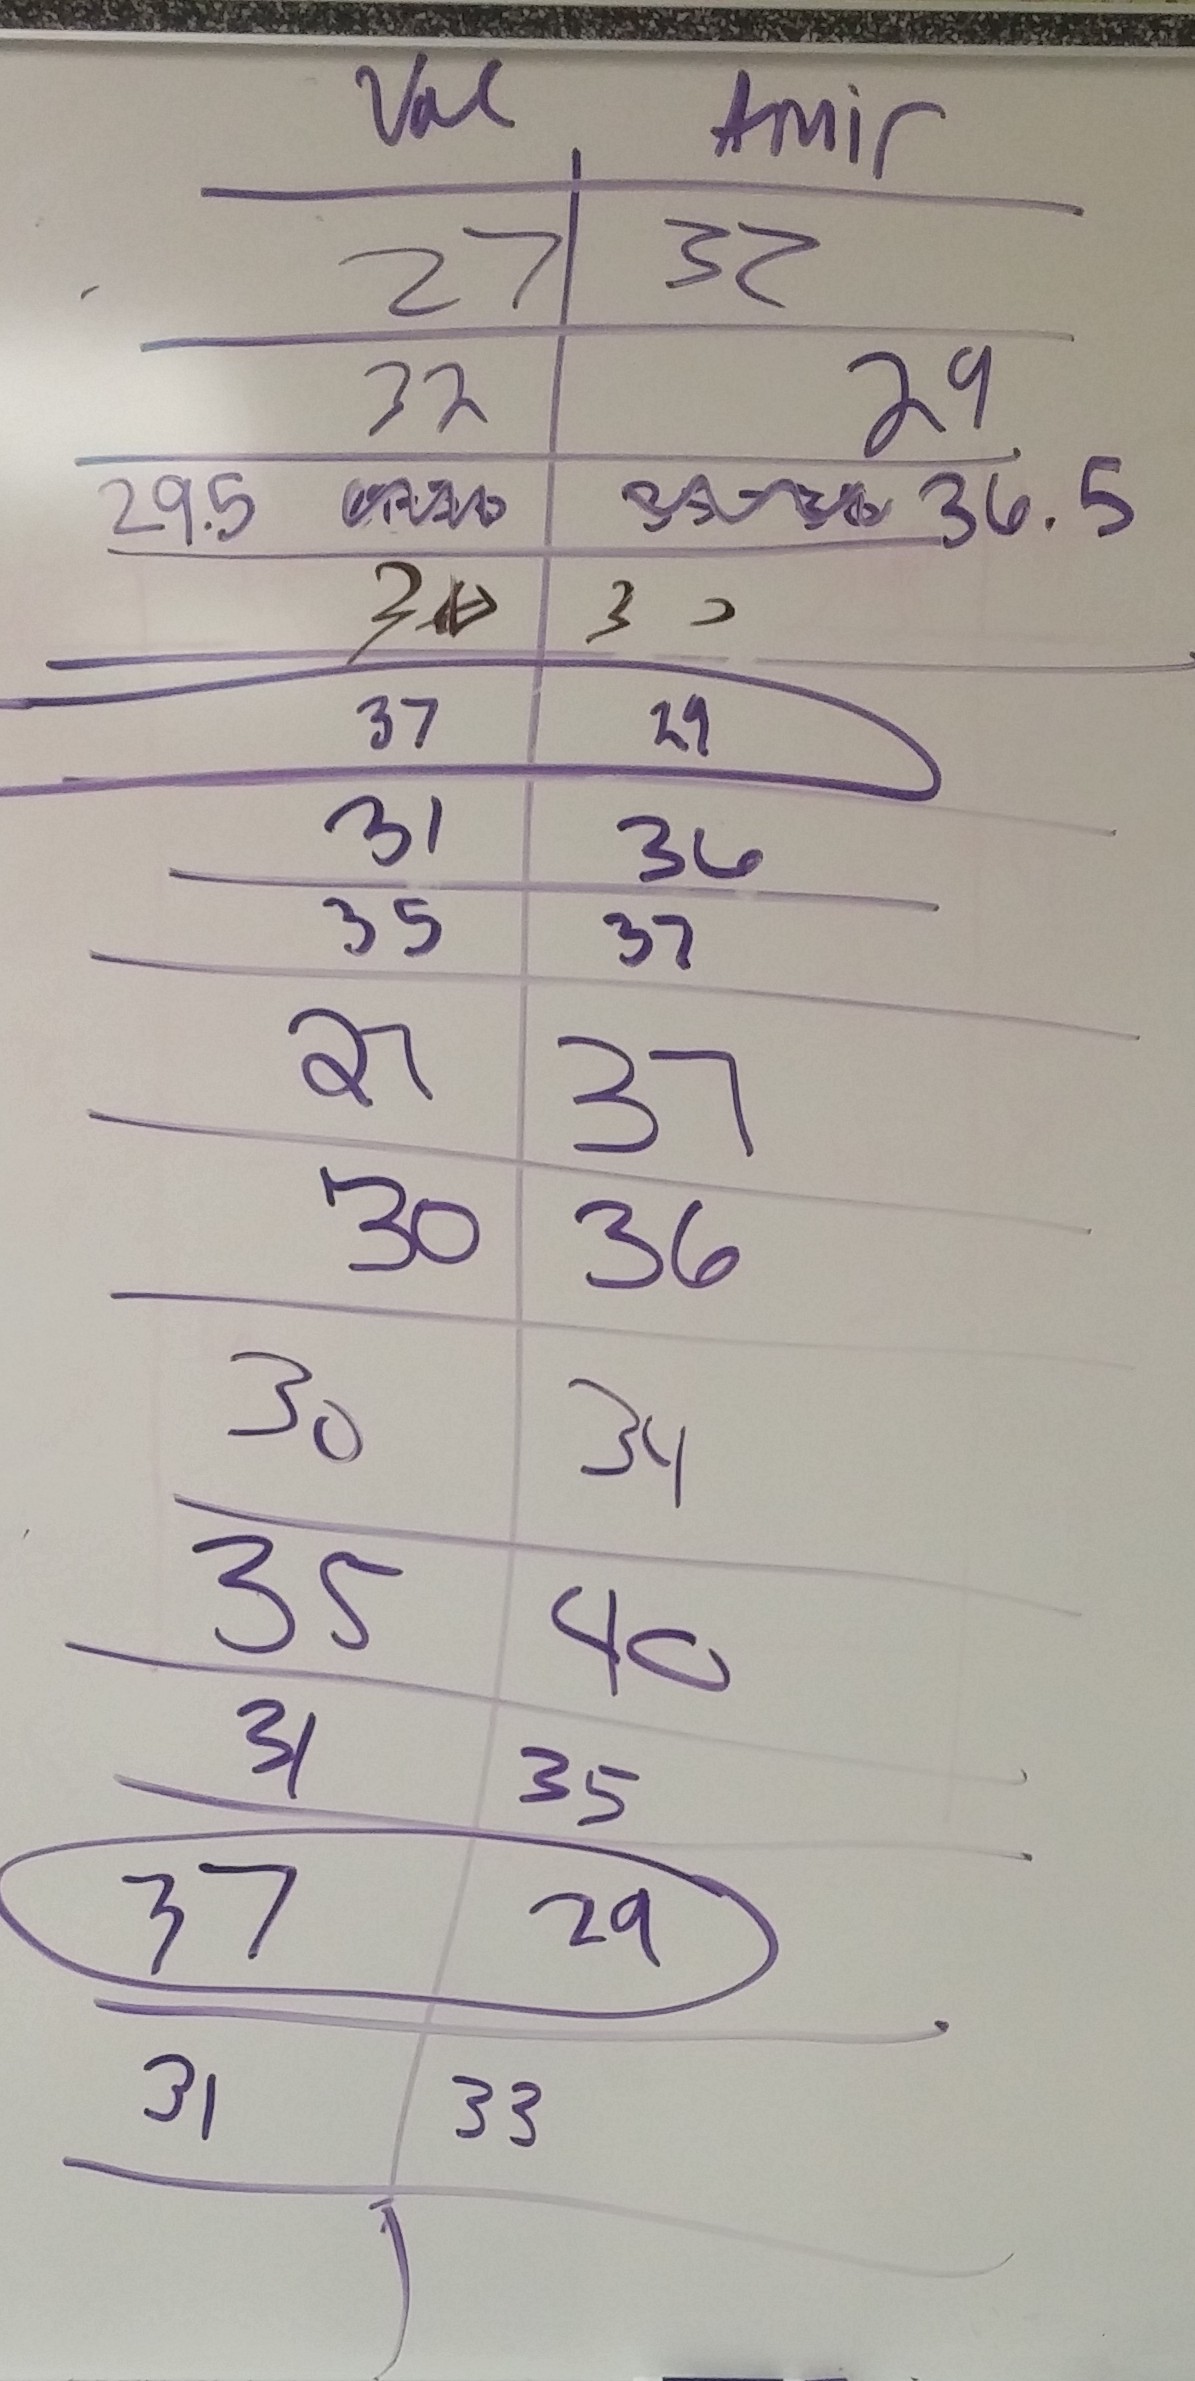 Val Amir
27 32
32 29
29.5 36.5
3
37 29
31 36
35 37
27 37
30 36
30 34
35 40
31 35
37 29
31 33